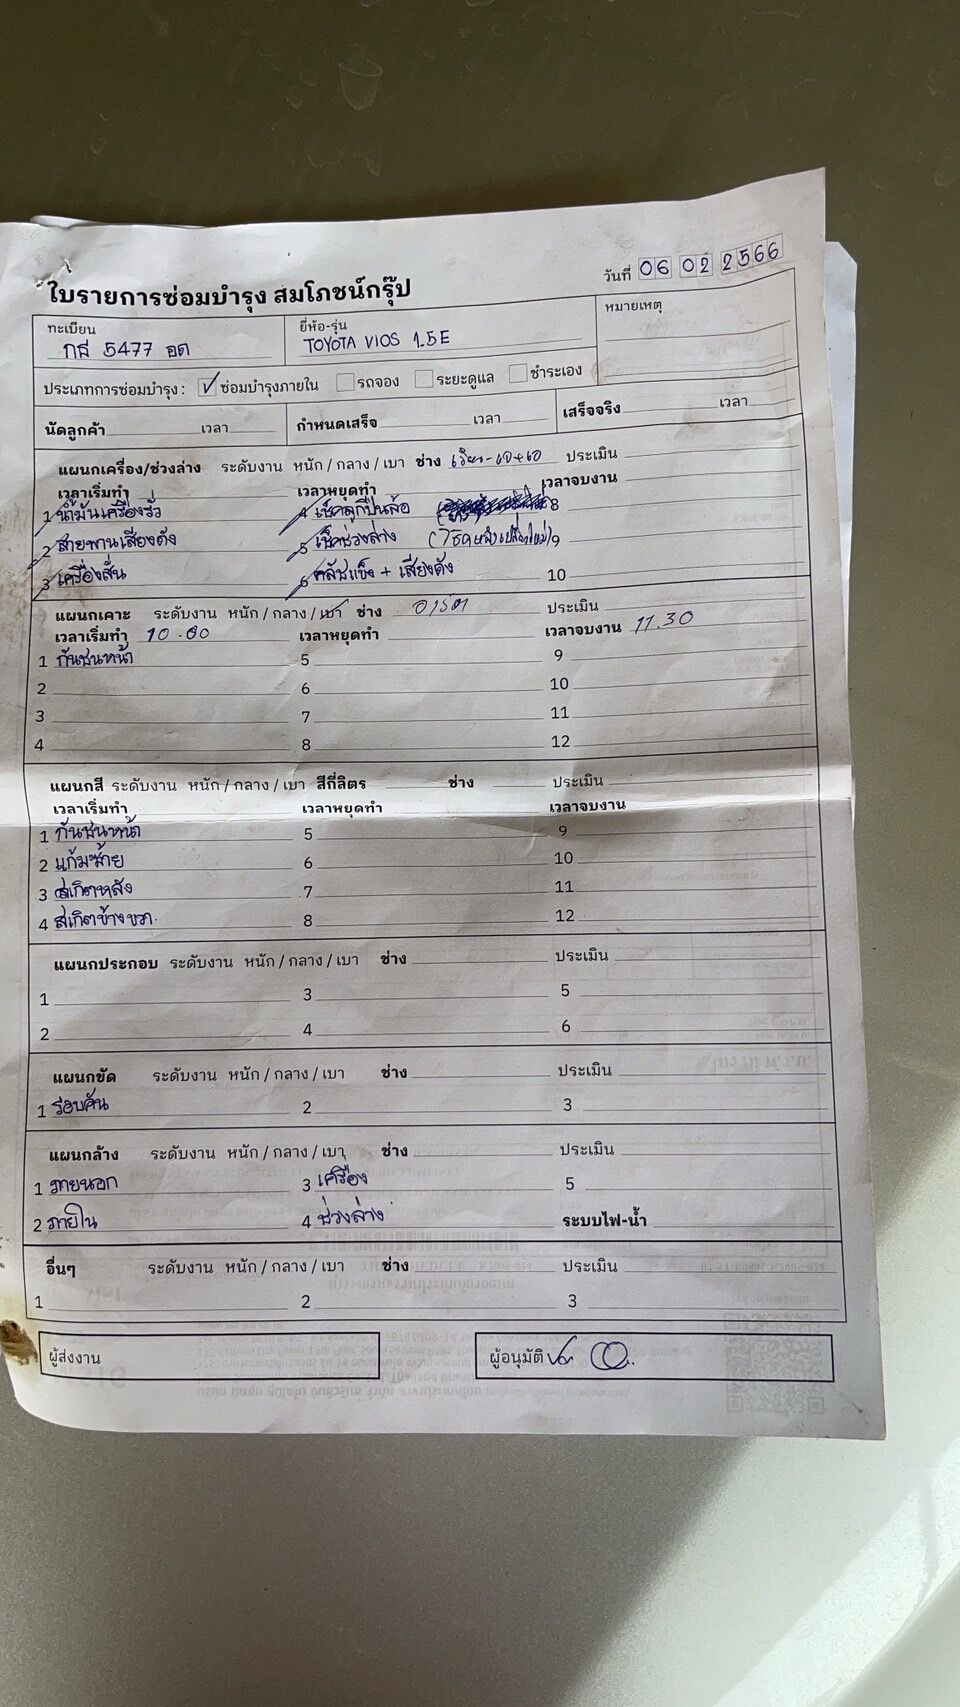 ใบรายการซ่อมบำรุง สมโภชน์กรุ๊ป
วันที่ 06 02 2566
ทะเบียน ยี่ห้อ-รุ่น หมายเหตุ
กส 5477 อด TOYOTA VIOS 1.5E
ประเภทการซ่อมบำรุง : ✓ ซ่อมบำรุงภายใน รถจอง ระยะดูแล ชำระเอง
นัดลูกค้า เวลา กำหนดเสร็จ เวลา เสร็จจริง เวลา
แผนกเครื่อง/ช่วงล่าง ระดับงาน หนัก / กลาง / เบา ช่าง ประเมิน
เวลาเริ่มทำ เวลาหยุดทำ เวลาจบงาน
1 น้ำมันเครื่องรั่ว 4 เช็คลูกปืนล้อ 8
2 สายพานเสียงดัง 5 เช็คช่วงล่าง 9
3 เครื่องสั่น 6 คลัชแข็ง + เสียงดัง 10
แผนกเคาะ ระดับงาน หนัก / กลาง / เบา ช่าง ประเมิน
เวลาเริ่มทำ 10.00 เวลาหยุดทำ เวลาจบงาน 11.30
1 กันชนหน้า 5 9
2 6 10
3 7 11
4 8 12
แผนกสี ระดับงาน หนัก / กลาง / เบา สีกี่ลิตร ช่าง ประเมิน
เวลาเริ่มทำ เวลาหยุดทำ เวลาจบงาน
1 กันชนหน้า 5 9
2 แก้มซ้าย 6 10
3 สเกิตหลัง 7 11
4 สเกิตข้างขวา 8 12
แผนกประกอบ ระดับงาน หนัก / กลาง / เบา ช่าง ประเมิน
1 3 5
2 4 6
แผนกขัด ระดับงาน หนัก / กลาง / เบา ช่าง ประเมิน
1 รอบคัน 2 3
แผนกล้าง ระดับงาน หนัก / กลาง / เบา ช่าง ประเมิน
1 ภายนอก 3 เครื่อง 5
2 ภายใน 4 ช่วงล่าง ระบบไฟ-น้ำ
อื่นๆ ระดับงาน หนัก / กลาง / เบา ช่าง ประเมิน
1 2 3
ผู้ส่งงาน ผู้อนุมัติ